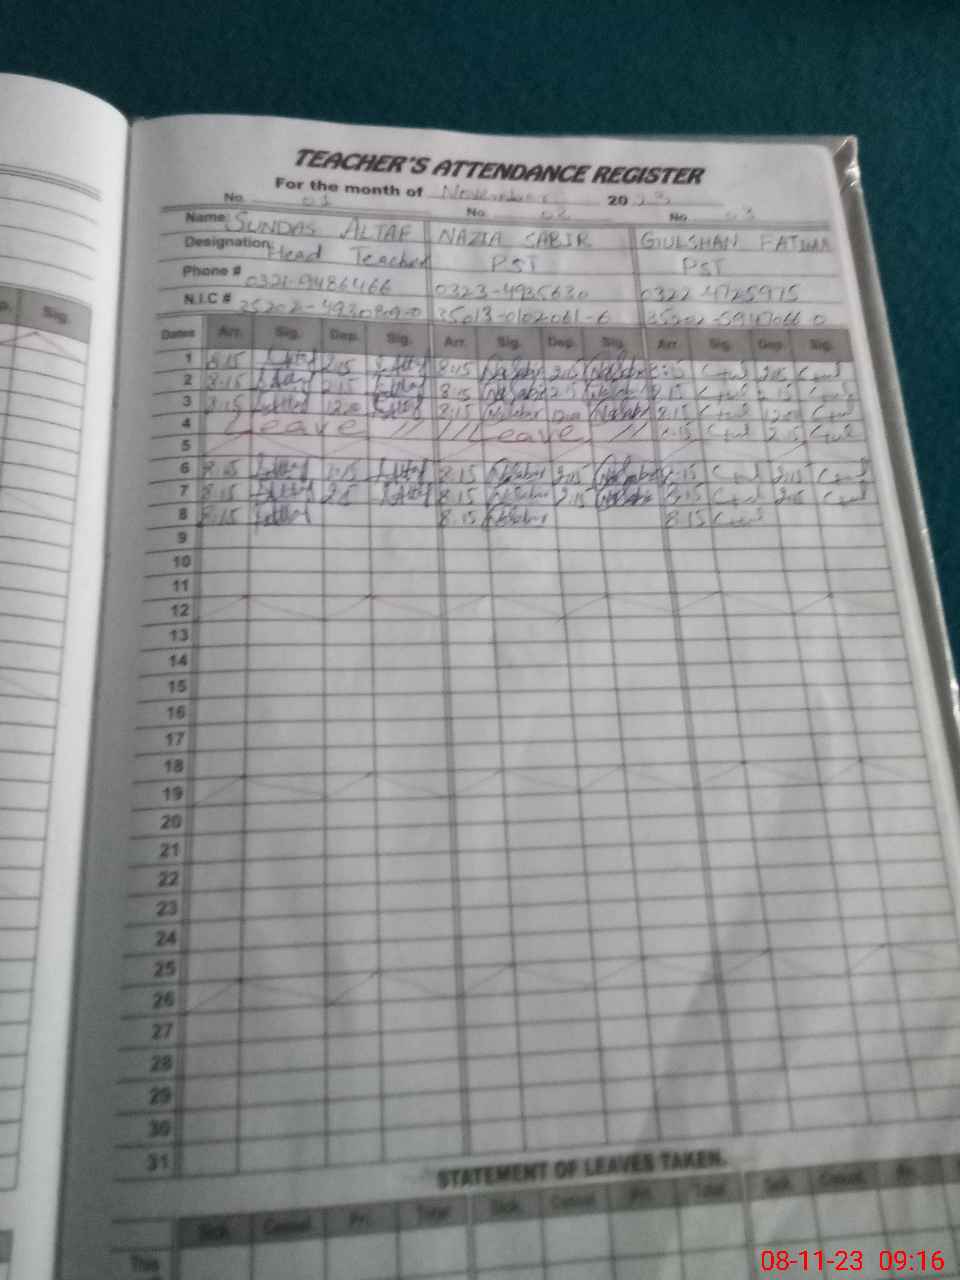 TEACHER'S ATTENDANCE REGISTER
For the month of November 20 23
No 01 No. 02 No. 03
Name: SUNDAS ALTAF NAZIA SABIR GULSHAN FATIMA
Designation: Head Teacher PST PST
Phone # 0321-9486466 0323-4935630 0322-4725975
N.I.C # 35202- 35013-0102061-6 35202-5947066-0
Sig.
Dates Arr. Sig. Dep. Sig. Arr. Sig. Dep. Sig. Arr. Sig. Dep Sig.
1 8:15 2:15 8:15 2:15 8:15 2:15
2 8:15 2:15 8:15 2:15 8:15 2:15
3 8:15 12:00 8:15 12:00 8:15 12:00
4 Leave // // Leave // 8:15 2:15
5
6 8:15 8:15 2:15 8:15 2:15
7 8:15 2:15 8:15 2:15 8:15 2:15
8 8:15 8:15 8:15
9
10
11
12
13
14
15
16
17
18
19
20
21
22
23
24
25
26
27
28
29
30
31
STATEMENT OF LEAVES TAKEN.
Sick. Casual. Pri. Total. Sick. Casual. Pri. Total. Sick. Casual. Pri.
This
08-11-23 09:16